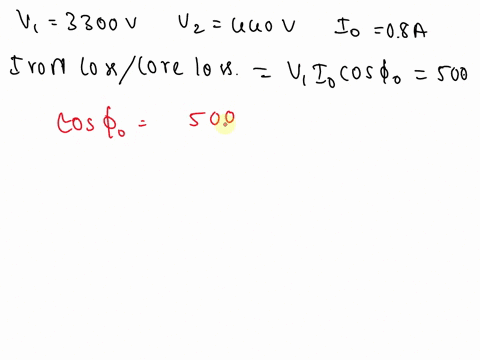 V₁ = 3300 V V₂ = 440 V I₀ = 0.8A
Iron Loss/Core loss. = V₁ I₀ cosϕ₀ = 500
cosϕ₀ = 500